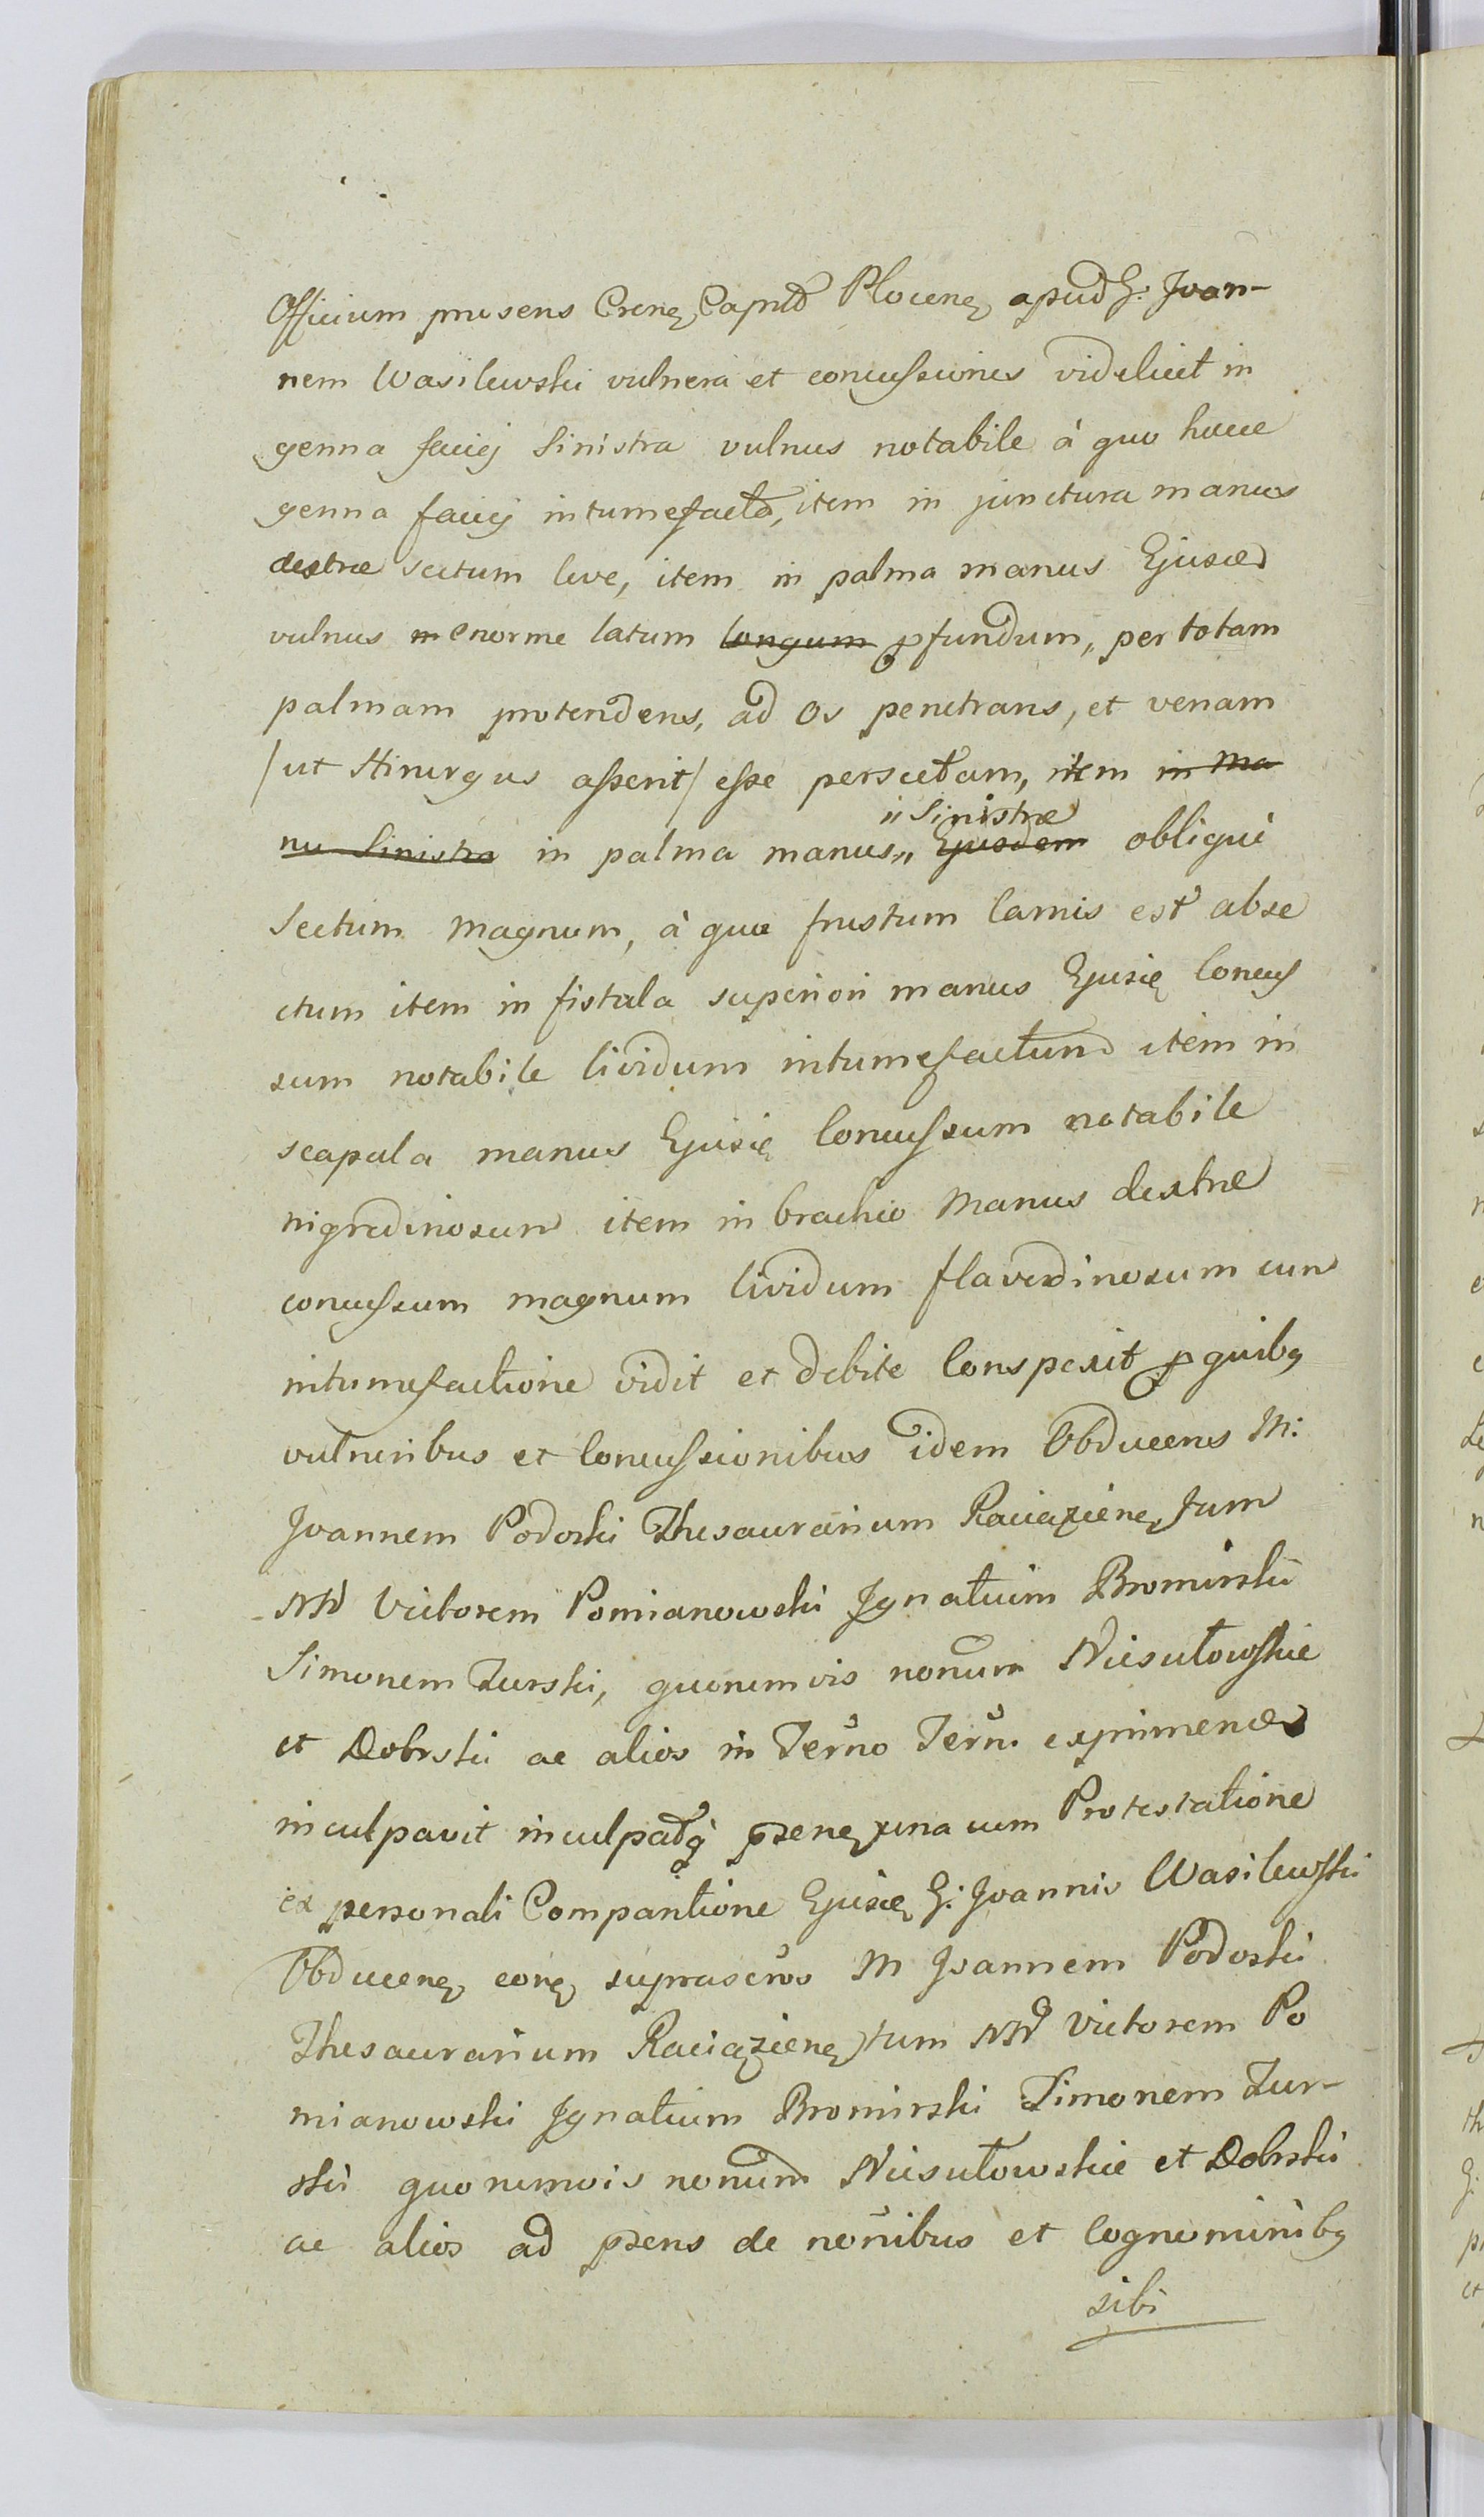 Officium præsens Crense Capitle Plocense apud G: Joan-
nem Wasilewski vulnera et concussiones videlicet in
genna faciei sinistra vulnus notabile à quo hæcce
genna faciei intumefacta, item in junctura manus
dextræ sectum leve, item in palma manus Ejusd
vulnus enorme latum longum pfundum, per totam
palmam protendens, ad os penetrans, et venam
/ut Hirurgus asserit/ esse persectam, item in ma
nu sinistra in palma manus,, Ejusdem obliquè
,, sinistræ
sectum magnum, à quo frustum Carnis est abse
ctum item in fistula superiori manus Ejusde Concus
sum notabile lividum intumefactum item in
scapula manus Ejusde Concussum notabile
nigredinosum item in brachio manus dextræ
concussum magnum lividum flavedinosum cum
intumefactione vidit et debite Conspexit p quibq
vulneribus et Concussionibus idem Obducens M:
Joannem Podoski Thesaurarium Raciąziens tum
NN Victorem Pomianowski Jgnatium Bromirski
Simonem Turski, quorumvis nonum Niesułowskie
et Dobrski ac alios in Terno Tern exprimendos
inculpavit inculpatq psens una cum Protestatione
ex personali Comparitione Ejusde G: Joannis Wasilewski
Obducens cons suprascros M Joannem Podoski
Thesaurarium Raciąziens tum NN Victorem Po
mianowski Jgnatium Bromirski Simonem Tur-
ski quorumvis nonum Niesułowskie et Dobrski
ac alios ad psens de nonibus et Cognominibq
sibi